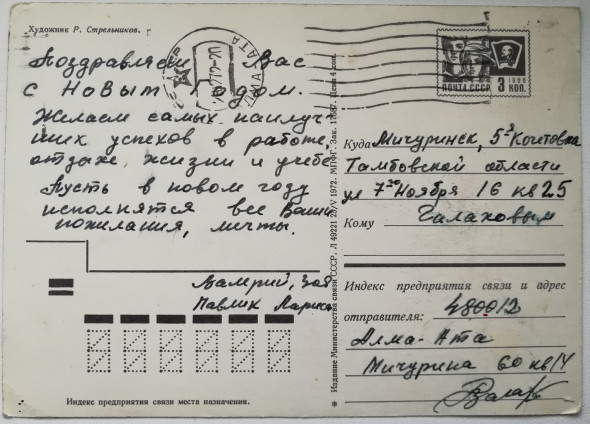 Художник Р. Стрельников.
Поздравляем Вас
с Новым Годом.
Желаем самых наилуч-
ших успехов в работе,
отдыхе, жизни и учебе
Пусть в новом году
исполнятся все Ваши
пожелания, мечты.
Валерий, Зоя
Павлик Лариса
Индекс предприятия связи места назначения.
Издание Министерства связи СССР. Л 49221 25/V 1972. МПФГ. Зак. Цена 4 коп.
АЛМА-АТА
1966
ПОЧТА СССР 3 КОП.
Куда Мичуринск, 5 Кочетовка
Тамбовской области
ул 7 Ноября 16 кв 25
Кому Галаховым
Индекс предприятия связи и адрес
отправителя: 480012
Алма-Ата
Мичурина 60 кв 14